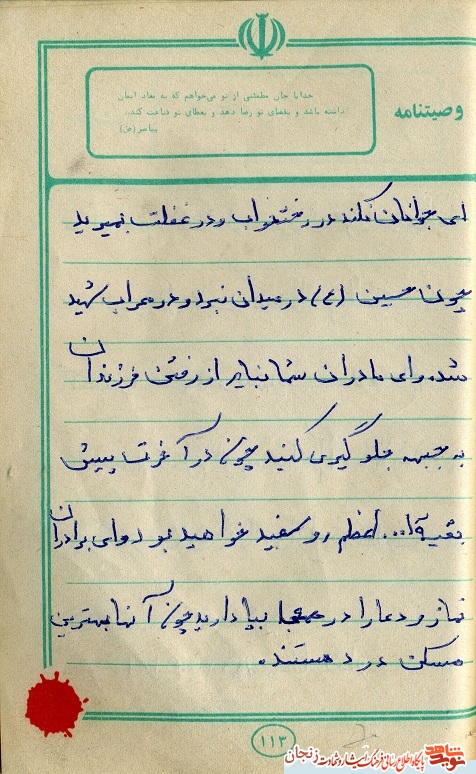 وصیتنامه
خدایا جان مطمئنی از تو می‌خواهم که به معاد ایمان
داشته باشد و بقضای تو رضا دهد و بعطای تو قناعت کند..
پیامبر (ص)
ای جوانان نکند در رختخواب و در غفلت بمیرید
چون حسین (ع) در میدان نبرد و در محراب شهید
شد. وای مادران شما نباید از رفتن فرزندان
به جبهه جلوگیری کنید چون در آخرت پیش
بقیة ا... اعظم رو سفید خواهید بود وای برادران
نماز و دعا را در همه جا بپا دارید چون آنها بهترین
مسکن درد هستند.
۱۱۳
نوید شاهد
پایگاه اطلاع رسانی فرهنگ ایثار و شهادت زنجان